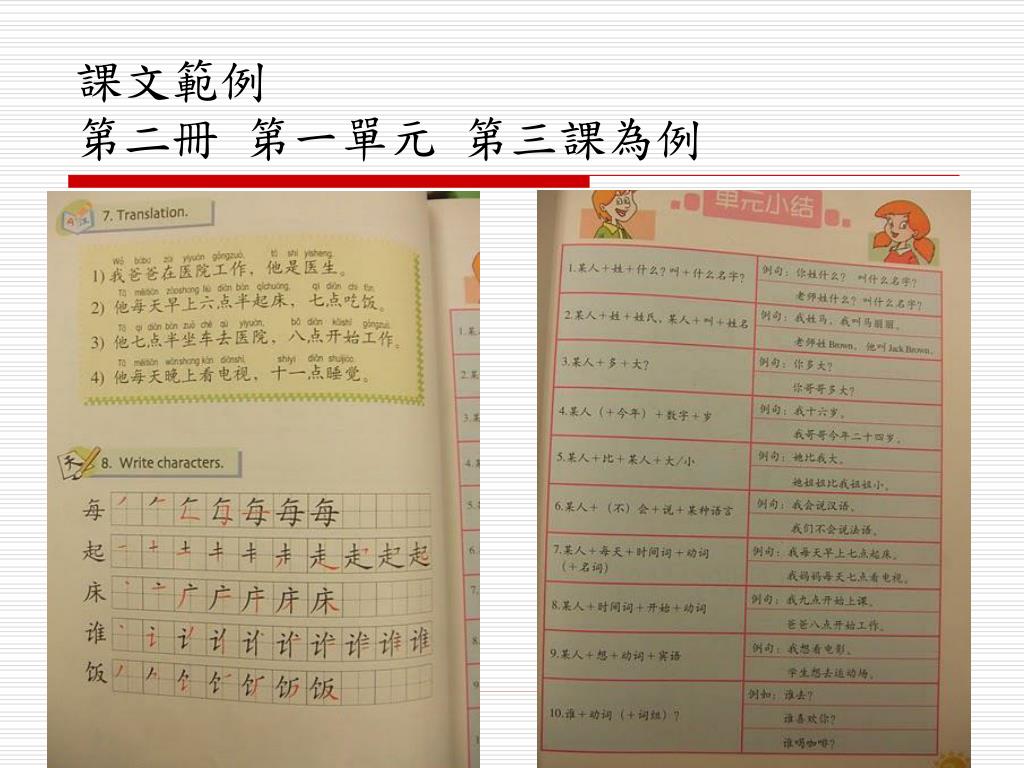 課文範例
第二冊 第一單元 第三課為例
7. Translation.
Wǒ bàba zài yīyuàn gōngzuò, tā shì yīshēng.
1) 我爸爸在医院工作，他是医生。
Tā měitiān zǎoshang liù diǎn bàn qǐchuáng, qī diǎn chī fàn.
2) 他每天早上六点半起床，七点吃饭。
Tā qī diǎn bàn zuò chē qù yīyuàn, bā diǎn kāishǐ gōngzuò.
3) 他七点半坐车去医院，八点开始工作。
Tā měitiān wǎnshang kàn diànshì, shíyī diǎn shuìjiào.
4) 他每天晚上看电视，十一点睡觉。
8. Write characters.
每
起
床
谁
饭
单元小结
1.某人＋姓＋什么？叫＋什么名字？
例句：你姓什么？ 叫什么名字？
老师姓什么？叫什么名字？
2.某人＋姓＋姓氏，某人＋叫＋姓名
例句：我姓马，我叫马丽丽。
老师姓Brown，他叫Jack Brown。
3.某人＋多＋大？
例句：你多大？
你哥哥多大？
4.某人（＋今年）＋数字＋岁
例句：我十六岁。
我哥哥今年二十四岁。
5.某人＋比＋某人＋大/小
例句：她比我大。
她姐姐比我姐姐小。
6.某人＋（不）会＋说＋某种语言
例句：我会说汉语。
我们不会说法语。
7.某人＋每天＋时间词＋动词
（＋名词）
例句：我每天早上七点起床。
我妈妈每天七点看电视。
8.某人＋时间词＋开始＋动词
例句：我九点开始上课。
爸爸八点开始工作。
9.某人＋想＋动词＋宾语
例句：我想看电影。
学生想去运动场。
10.谁＋动词（＋词组）？
例如：谁去？
谁喜欢你？
谁喝咖啡？